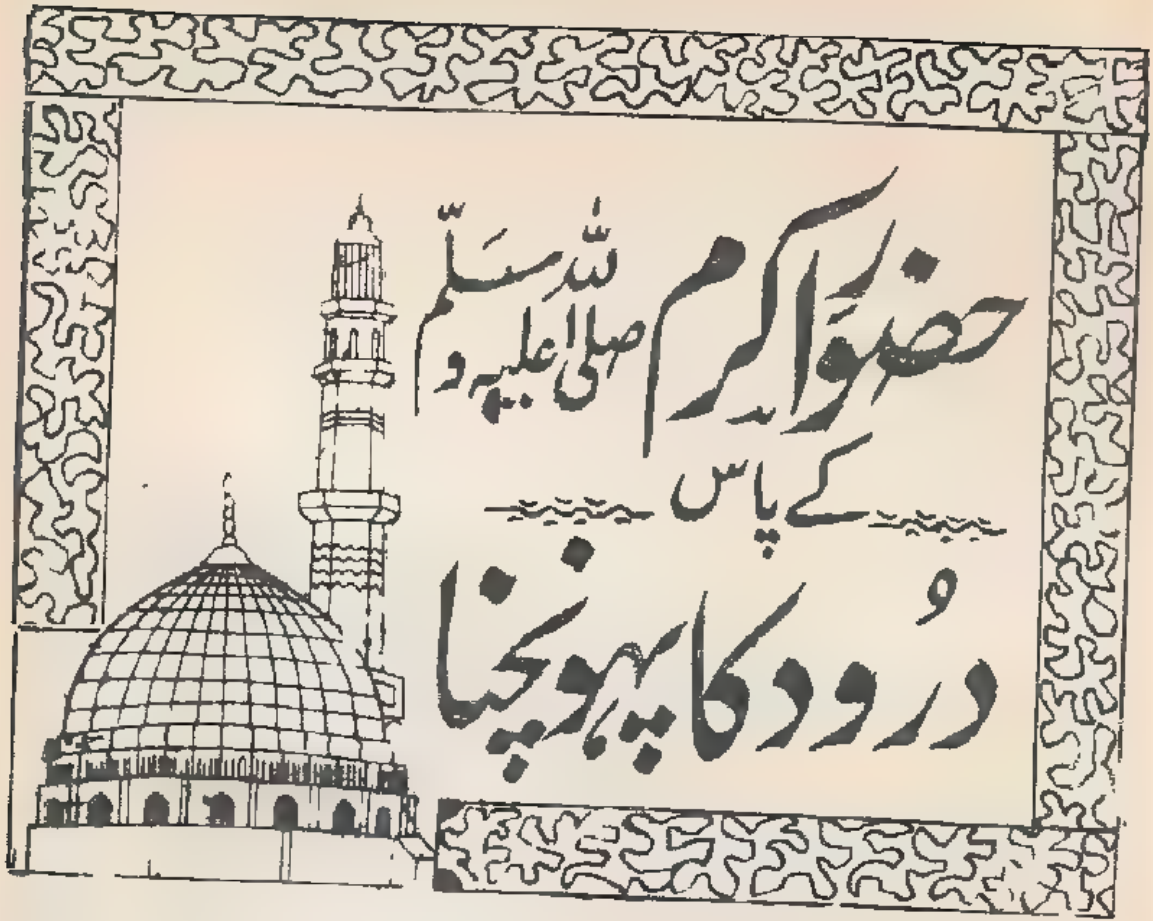 حضور اکرم صلی اللہ علیہ وسلّم
کے پاس
درُود کا پہونچنا